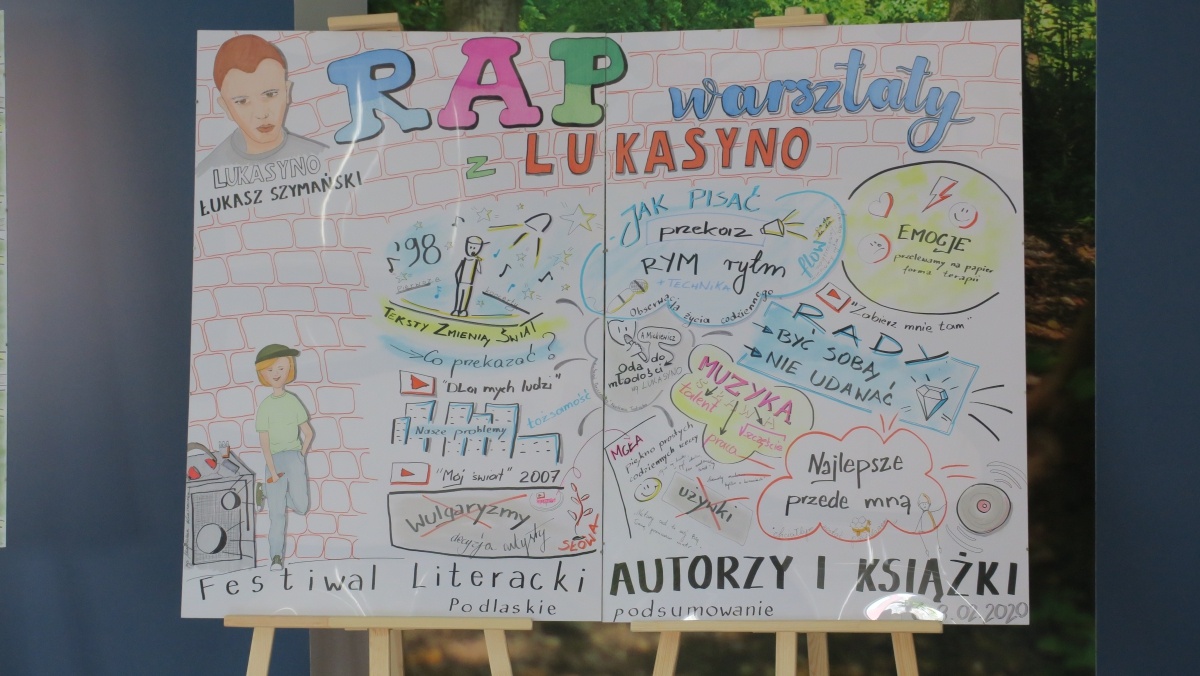 RAP warsztaty
z LUKASYNO
LUKASYNO
ŁUKASZ SZYMAŃSKI
'98
TEKSTY ZMIENIĄ ŚWIAT
Co przekazać?
"Dla mych ludzi"
Nasze problemy
tożsamość
"Mój świat" 2007
Wulgaryzmy
decyzja artysty
SŁOWA
JAK PISAĆ
przekaz
flow
RYM rytm
+ TECHNIKA
Obserwacja życia codziennego
A. Mickiewicz
Oda do młodości
LUKASYNO
EMOCJE
przelewamy na papier
forma terapii
"Zabierz mnie tam"
RADY
BYĆ SOBĄ,
NIE UDAWAĆ
MUZYKA
talent
praca
szczęście
MGŁA
piękno prostych
codziennych rzeczy
używki
Najlepsze
przede mną
Festiwal Literacki AUTORZY I KSIĄŻKI
Podlaskie podsumowanie
.02.2020